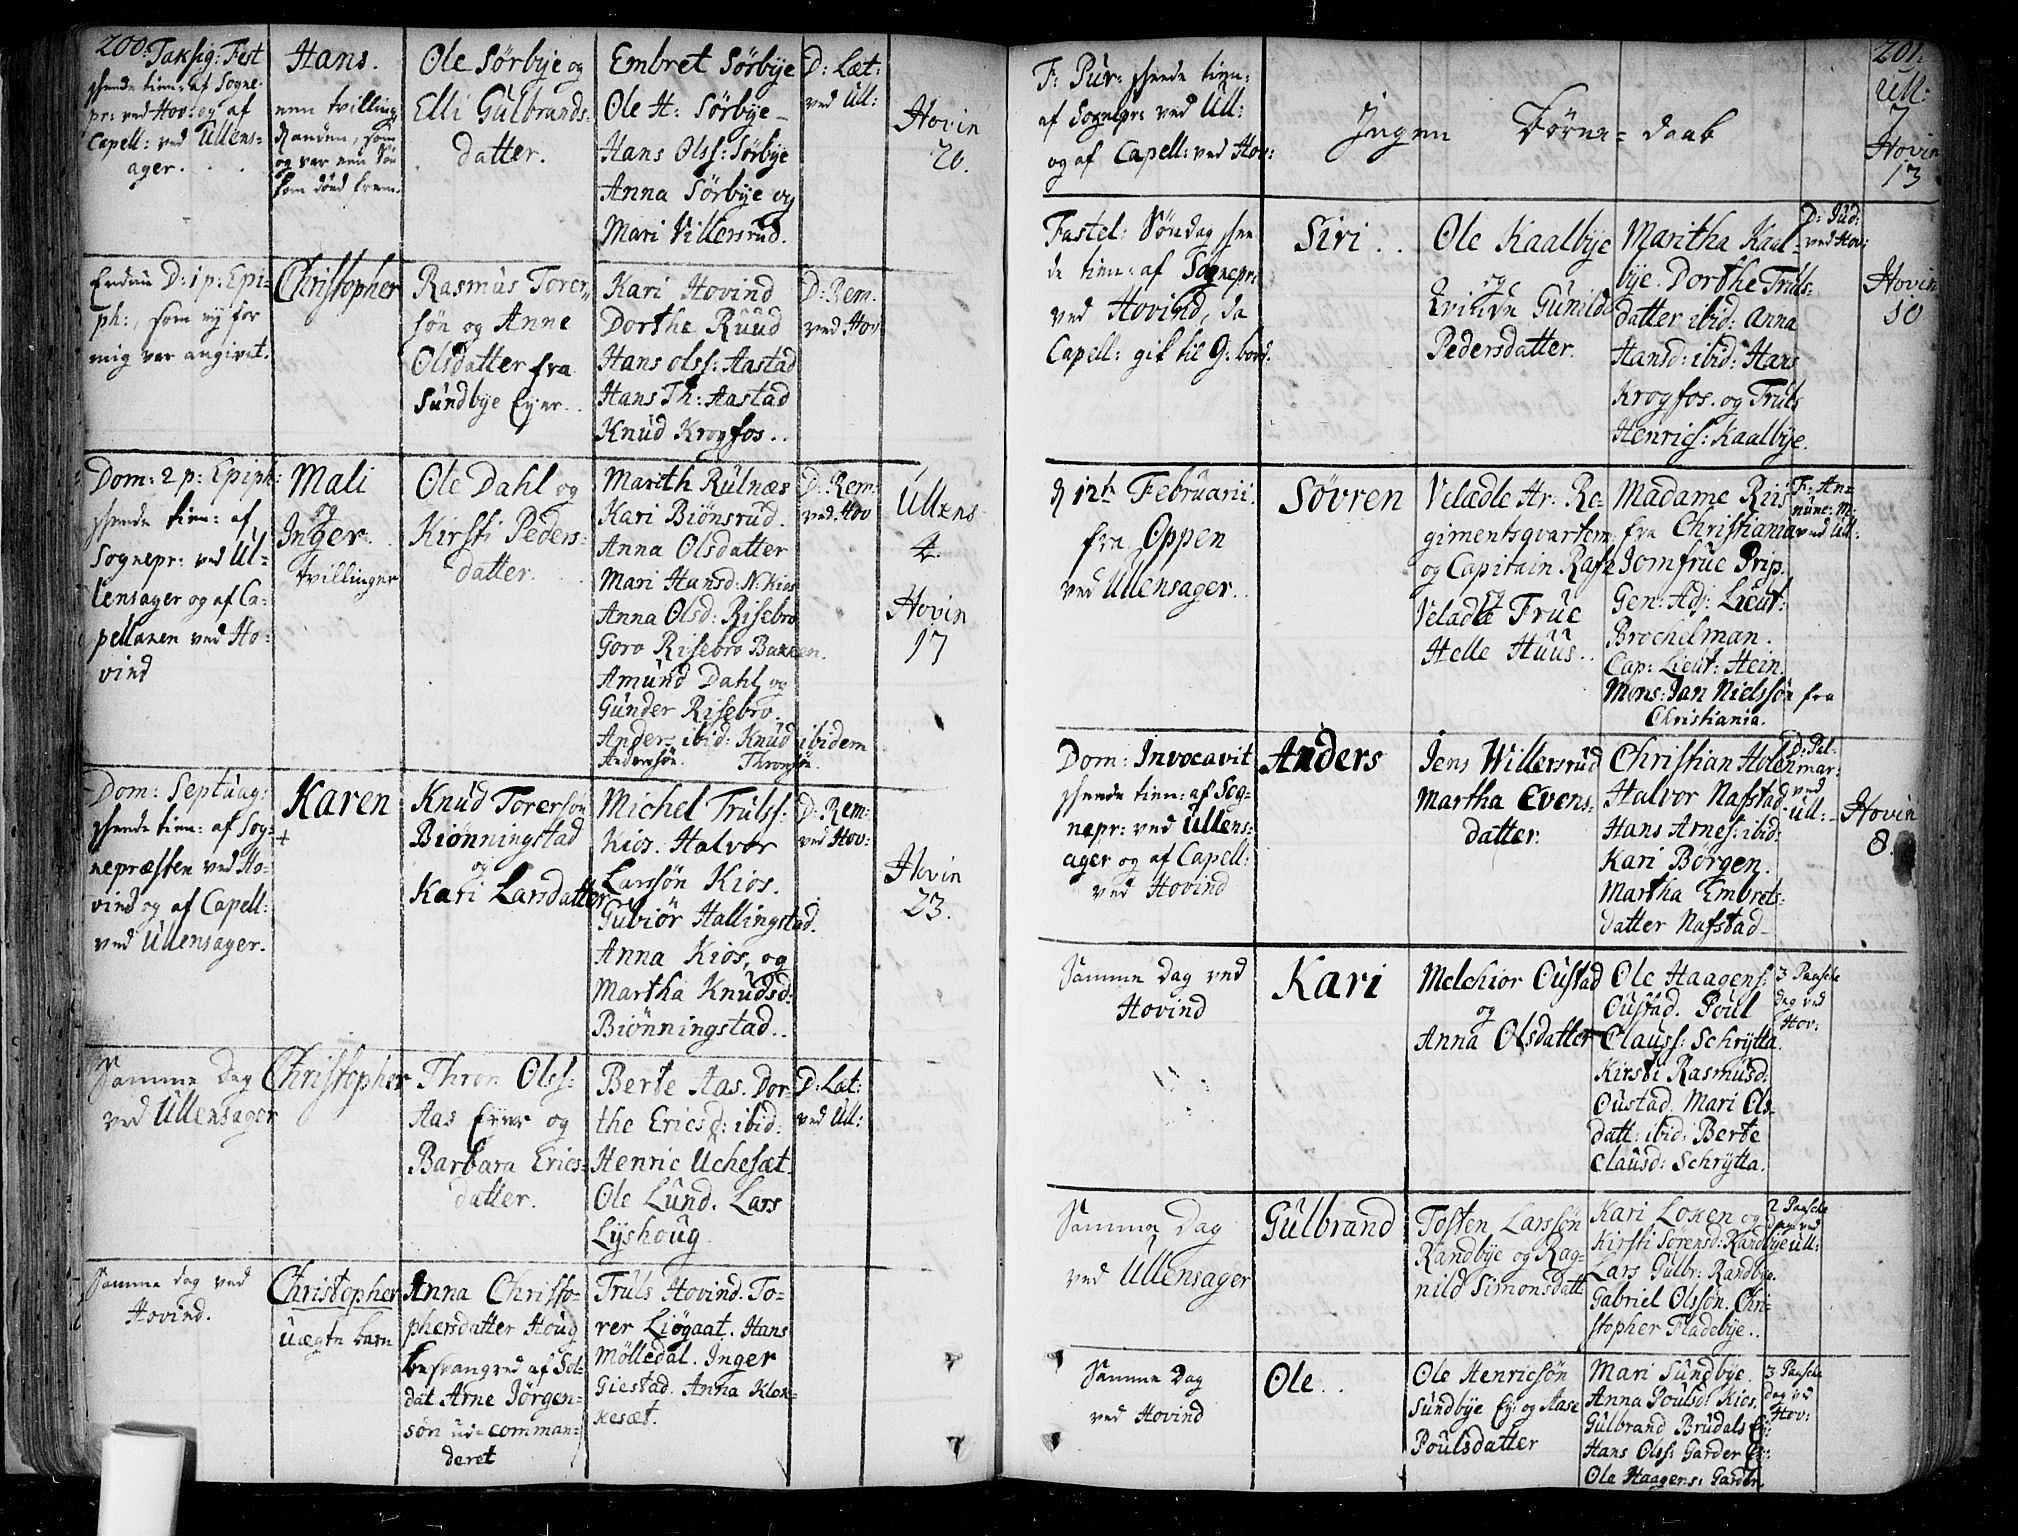 200.
Taksig: Fest
skeede tien: af Sogne-
pr: ved Hov: og af
Capell: ved Ullens-
ager.
Hans.
een tvilling,
den anden, som
og var een Søn
som død frem.
Ole Sørbÿe og
Elli Gulbrands-
datter.
Embret Sørbÿe
Ole H: Sørbÿe
Hans Olss: Sørbÿe
Anna Sørbÿe og
Mari Villersrud.
D: Læt:
ved Ull:
Hovin
20.
Endnu D: 1 p: Epi-
ph:, som eÿ for
mig var angivet.
Christopher
Rasmus Torer-
søn og Anne
Olsdatter fra
Sundbÿe Eÿer.
Kari Hovind
Dorthe Ruud
Hans Olss: Aastad
Hans Th: Aastad
Knud Krogfos.
D: Rem:
ved Hov
Dom: 2 p: Epiph:
skeede tien: af
Sognepr: ved Ul-
lensager og af Ca-
pellanen ved Ho-
vind
Mali
og
Inger.
tvillinger
Ole Dahl og
Kirsti Peders-
datter.
Marith Rulnæs
Kari Biönsrud.
Anna Olsdatter
Mari Hansd: N: Kios
Anna Olsd: Risebro
Goro Risebro Bakken.
Amund Dahl og
Gunder Risebro.
Anders ibid: Knud ibidem
Andersøn. Thronsøn.
D: Rem:
ved Hov
Ullens
4.
Hovin
17
Dom: Septuag:
skeede tien: af Sog-
nepræsten ved Ho-
vind og af Capell:
ved Ullensager.
Karen
+
Knud Torersøn
Biönningstad
og
Kari Larsdatter
Michel Trulss:
Kios. Halvor
Larssøn Kios.
Gubiör Hallingstad.
Anna Kios, og
Martha Knudsd:
Biönningstad.
D: Rem:
ved Hov:
Hovin
23.
Samme Dag
ved Ullensager
Christopher
Thron Olss:
Aas Eÿer og
Barbara Erics-
datter.
Berte Aas. Dor-
the Ericsd: ibid:
Henric Uchesæt
Ole Lund. Lars
Lÿshoug.
D: Læt:
ved Ull:
Samme dag ved
Hovind.
Christopher
uægte barn
Anna Christo-
phersdatter Houg
besvangred af Sol-
dat Arne Jörgen-
søn ud-comman-
deret
Truls Hovind. To-
rer Liögaat. Hans
Mölledal. Inger
Giestad. Anna Klok-
kesæt.
201.
F: Pur: skeede tien:
af Sognepr: ved Ull:
og af Capell: ved Hov:
Ingen Børne-daab
Ull:
7
Hovin
13
Fastel: Søndag skee-
de tien: af Sognepr:
ved Hovind, da
Capell: gik til G: bord.
Siri
Ole Kaalbÿe
og
Qvinde Gunild
Pedersdatter.
Maritha Kaal-
bÿe. Dorthe Truls-
datter ibid: Anna
Hansd: ibid: Hans
Krogfos. og Truls
Henrics: Kaalbÿe.
D: Jud:
ved Hov:
Hovin
10
d 12te Februarii
fra Oppen
ved Ullensager.
Søvren
Velædle Hr. Re-
gimentsqvarterm:
og Capitain Rasch
og
Velædle Frue
Helle Huus.
Madame Riis
fra Christiania
Jomfrue Prip.
Gen: Adj: Lieut:
Brochelman.
Cap: Lieut: Hein.
Mons: Jan Nielssøn fra
Christiania.
F: An-
nunc: M:
ved Ull:
Dom: Invocavit
skeede tien: af Sog-
nepr: ved Ullens-
ager og af Capell:
ved Hovind
Anders
Jens Willersrud
Martha Evens-
datter.
Christian Holen
Halvor Nafstad
Hans Arnes: ibid:
Kari Börgen.
Martha Embrets-
datter Nafstad
D: Pal-
mar:
ved
Ull:
Hovin
8.
Samme Dag ved
Hovind
Kari
Melchior Oustad
og
Anna Olsdatter
Ole Haagens:
Oustad. Poul
Clauss: Schrÿtta.
Kirsti Rasmusd:
Oustad. Mari Ols-
datt: ibid: Berte
Clausd: Schrÿtta.
3 Paasche
dag ved
Hov:
Samme Dag
ved Ullensager
Gulbrand
Tosten Larssøn
Randbÿe og Rag-
nild Simonsdatt
Kari Loken og
Kirsti Sörensd: Randbÿe
Lars Gulbr: Randbÿe.
Gabriel Olssøn. Chri-
stopher Fladebÿe.
2 Paasche
dag ved
Ull:
Samme Dag
ved Hovind
Ole
Ole Henricsøn
Sundbÿe Eÿ: og Aase
Poulsdatter
Mari Sundbÿe.
Anna Poulsd: Kios.
Gulbrand Brudals Eÿ:
Hans Olss: Garder Eÿ:
Ole Haagens: Garder.
3 Paasche
dag ved
Hov: